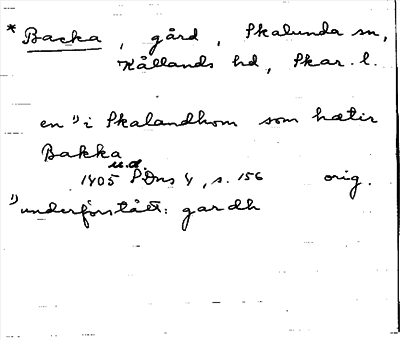 * Backa, gård, Skalunda sn,
Kållands hd, Skar. l.
en 1) i Skalandhom som hætir
Bakka
u.d.
1405 SDns 4, s. 156 orig.
1) underförstått: gardh